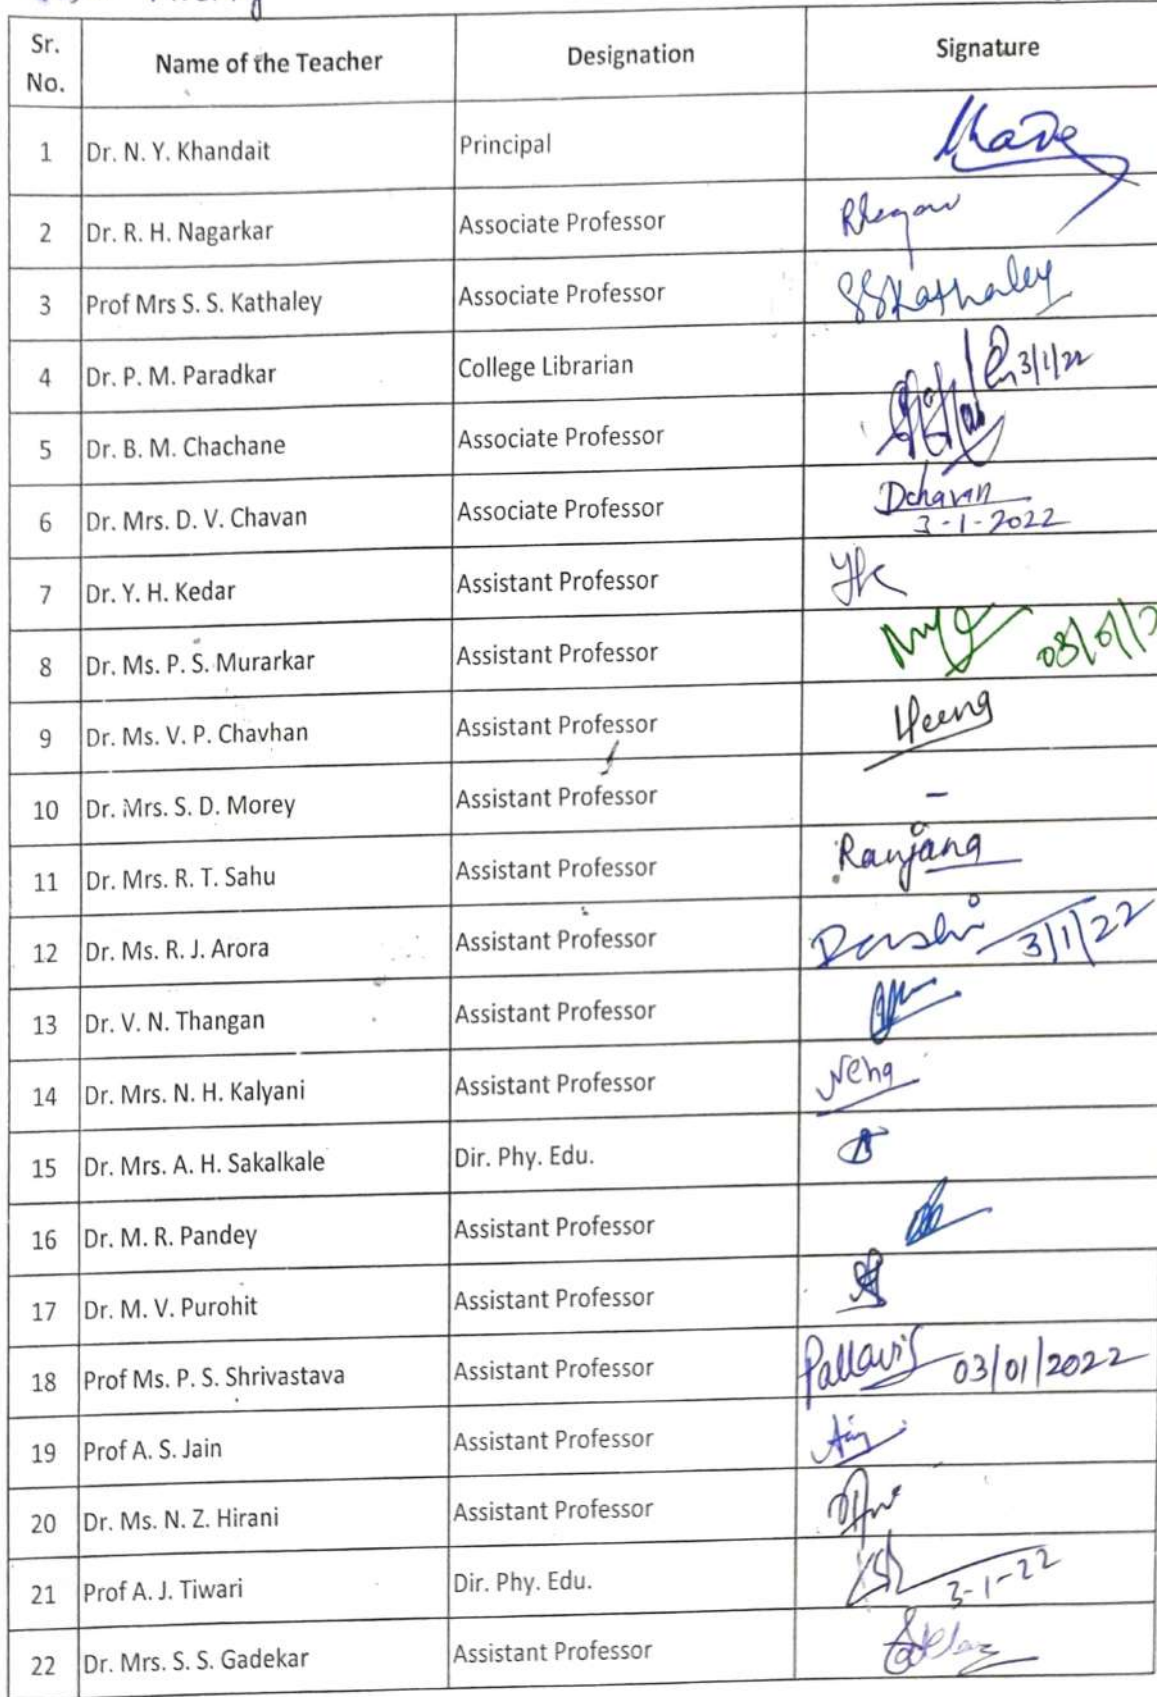 Sr. No. Name of the Teacher Designation Signature
1 Dr. N. Y. Khandait Principal
2 Dr. R. H. Nagarkar Associate Professor
3 Prof Mrs S. S. Kathaley Associate Professor SSKathaley
4 Dr. P. M. Paradkar College Librarian 3/1/22
5 Dr. B. M. Chachane Associate Professor
6 Dr. Mrs. D. V. Chavan Associate Professor Dchavan
3-1-2022
7 Dr. Y. H. Kedar Assistant Professor
8 Dr. Ms. P. S. Murarkar Assistant Professor
9 Dr. Ms. V. P. Chavhan Assistant Professor
10 Dr. Mrs. S. D. Morey Assistant Professor -
11 Dr. Mrs. R. T. Sahu Assistant Professor Ranjana
12 Dr. Ms. R. J. Arora Assistant Professor 3/1/22
13 Dr. V. N. Thangan Assistant Professor
14 Dr. Mrs. N. H. Kalyani Assistant Professor Neha
15 Dr. Mrs. A. H. Sakalkale Dir. Phy. Edu.
16 Dr. M. R. Pandey Assistant Professor
17 Dr. M. V. Purohit Assistant Professor
18 Prof Ms. P. S. Shrivastava Assistant Professor PallaviS 03/01/2022
19 Prof A. S. Jain Assistant Professor
20 Dr. Ms. N. Z. Hirani Assistant Professor
21 Prof A. J. Tiwari Dir. Phy. Edu. 3-1-22
22 Dr. Mrs. S. S. Gadekar Assistant Professor